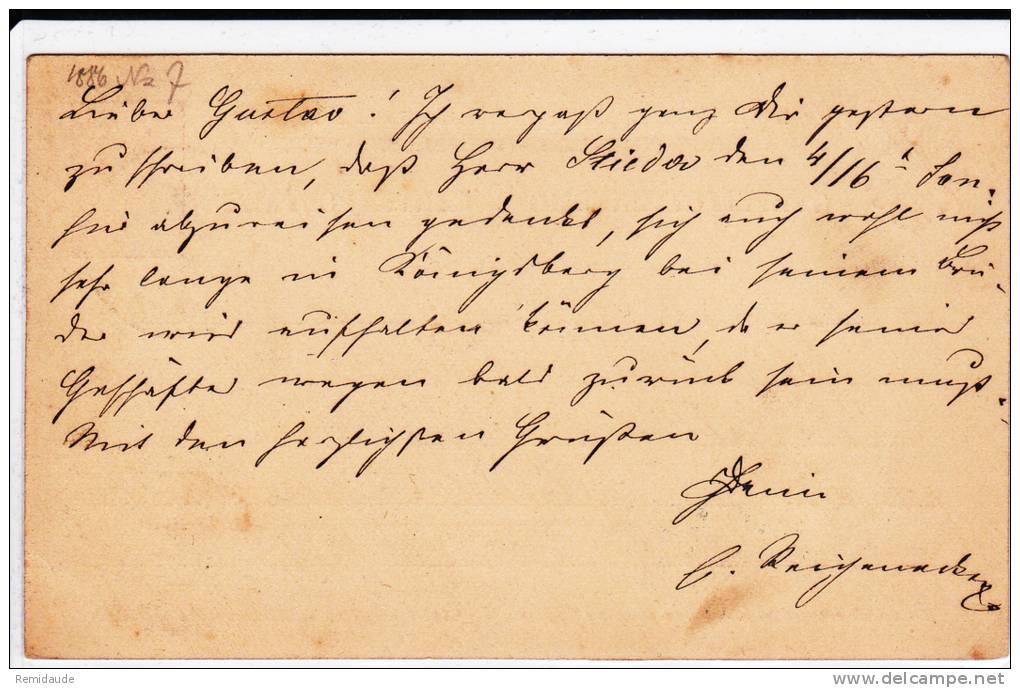 1886 No 7
Lieber Gustav! Ich vergaß ganz Dir gestern
zu schreiben, daß Herr Stieda den 4/16t
hier abzureisen gedenkt, sich auch wohl nicht
sehr lange in Königsberg bei seinem Bru-
der wird aufhalten können, da er seiner
Geschäfte wegen bald zurück sein muß.
Mit den herzlichsten Grüßen
Dein
C. Reichenecker
Remidaude
www.delcampe.net